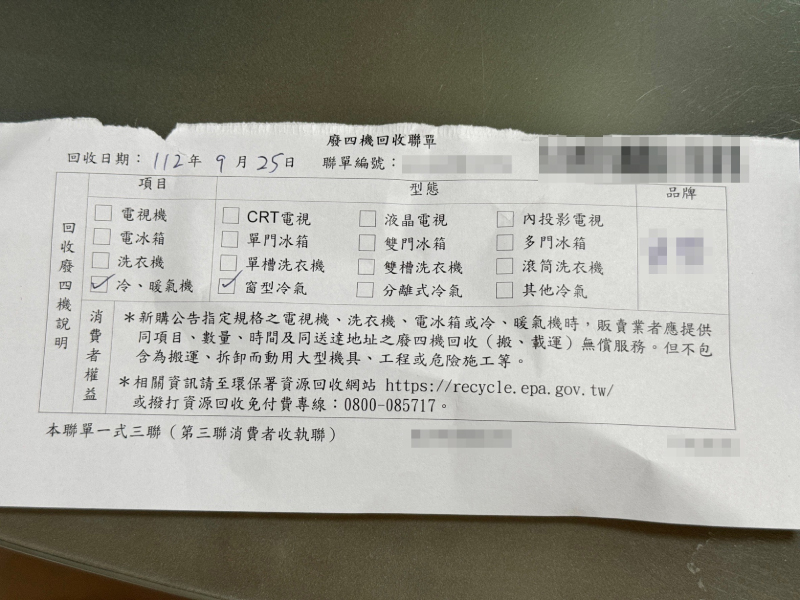 廢四機回收聯單
回收日期：112年9月25日 聯單編號：
項目 型態 品牌
回收廢四機說明
☐電視機 ☐CRT電視 ☐液晶電視 ☐內投影電視
☐電冰箱 ☐單門冰箱 ☐雙門冰箱 ☐多門冰箱
☐洗衣機 ☐單槽洗衣機 ☐雙槽洗衣機 ☐滾筒洗衣機
☑冷、暖氣機 ☑窗型冷氣 ☐分離式冷氣 ☐其他冷氣
消費者權益
＊新購公告指定規格之電視機、洗衣機、電冰箱或冷、暖氣機時，販賣業者應提供
同項目、數量、時間及同送達地址之廢四機回收（搬、載運）無償服務。但不包
含為搬運、拆卸而動用大型機具、工程或危險施工等。
＊相關資訊請至環保署資源回收網站 https://recycle.epa.gov.tw/
或撥打資源回收免付費專線：0800-085717。
本聯單一式三聯（第三聯消費者收執聯）